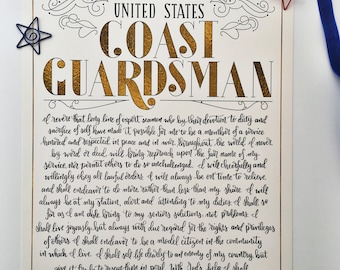 UNITED STATES
COAST
GUARDSMAN
I revere that long line of expert seamen who by their devotion to duty and
sacrifice of self have made it possible for me to be a member of a service
honored and respected in peace and in war, throughout the world. I never
by word or deed, will bring reproach upon the fair name of my
service, nor permit others to do so unchallenged. I will cheerfully and
willingly obey all lawful orders. I will always be on time to relieve,
and shall endeavor to do more, rather than less, than my share. I will
always be at my station, alert and attending to my duties. I shall, so
far as I am able, bring to my seniors solutions, not problems. I
shall live joyously, but always with due regard for the rights and privileges
of others. I shall endeavor to be a model citizen in the community
in which I live. I shall sell life dearly to an enemy of my country, but
give it freely to rescue those in peril. With God's help, I shall